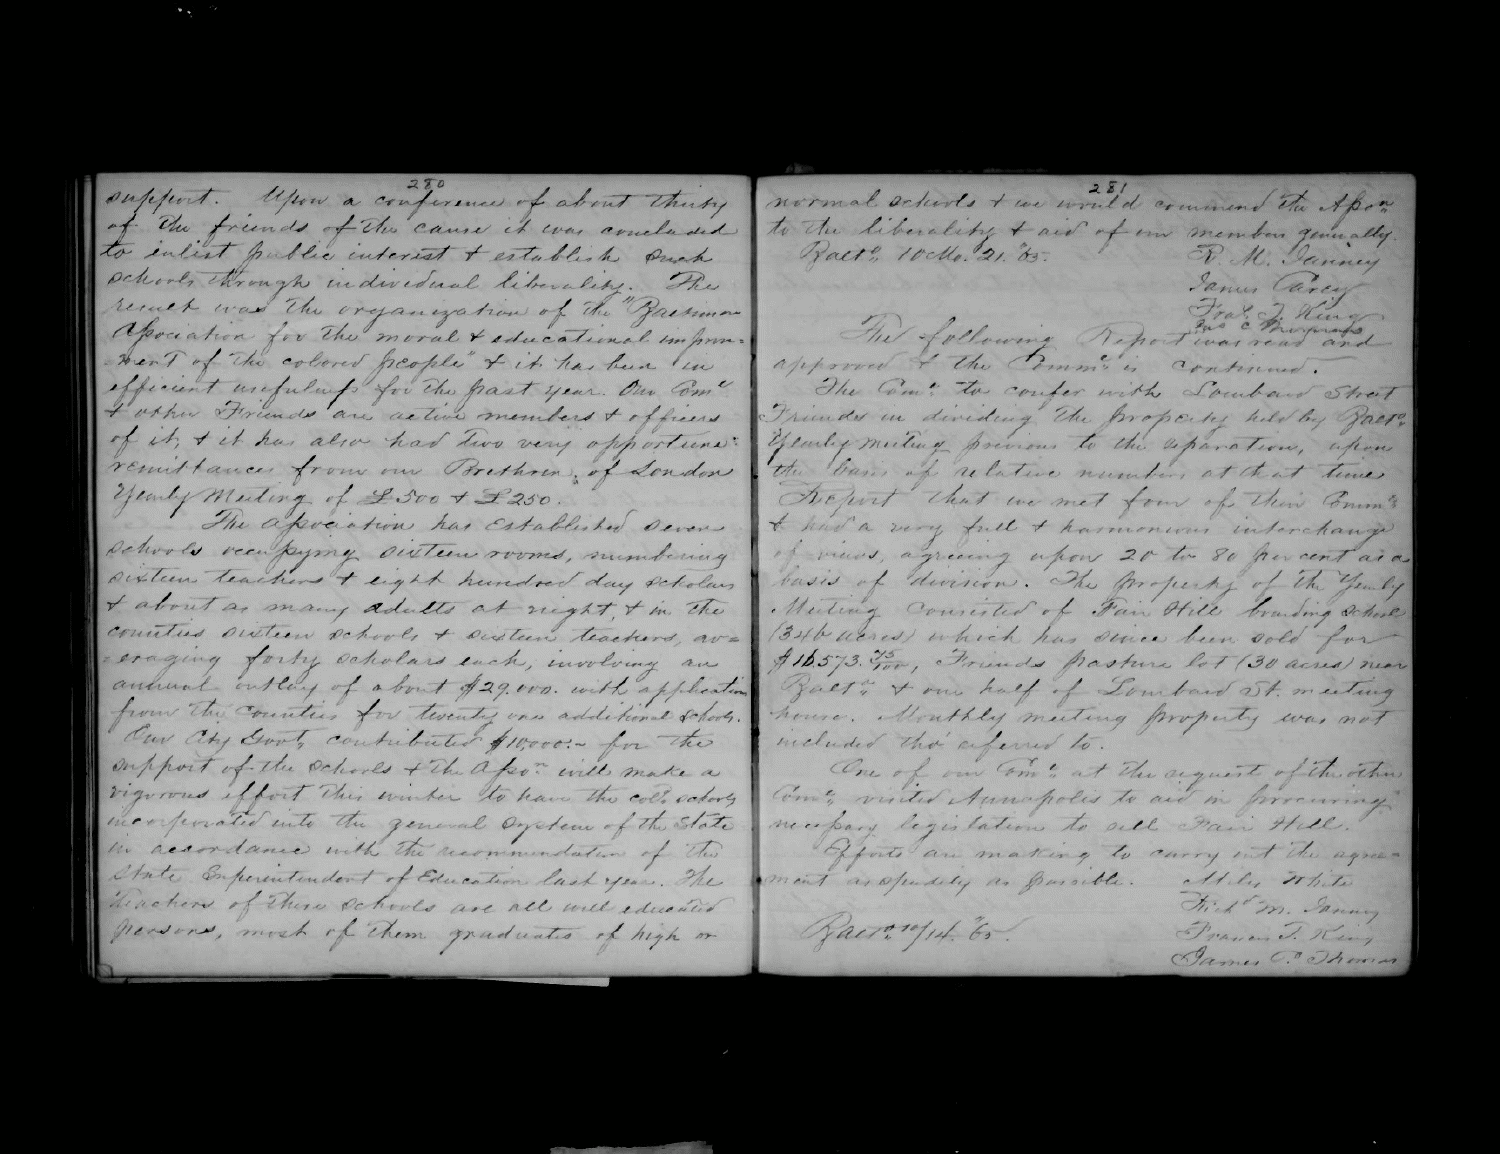 280
support. Upon a conference of about thirty
of the friends of the cause it was concluded
to enlist public interest & establish such
schools through individual liberality. The
result was the organization of the "Baltimore
Association for the moral & educational improve=
=ment of the colored people" & it has been in
efficient usefulness for the past year. Our Com.e
& other Friends are active members & officers
of it, & it has also had two very opportune
remittances from our Brethren of London
Yearly Meeting of £500 & £250.
The Association has established seven
schools occupying sixteen rooms, numbering
sixteen teachers & eight hundred day scholars
& about as many adults at night, & in the
counties sixteen schools & sixteen teachers, av=
=eraging forty scholars each, involving an
annual outlay of about $29.000. with application
from the counties for twenty one additional schools.
Our City Govt. contributed $10,000.- for the
support of the schools & the Asso.n will make a
vigorous effort this winter to have the col.d schools
incorporated into the general system of the State
in accordance with the recommendation of the
State Superintendent of Education last year. The
teachers of these schools are all well educated
persons, most of them graduates of high or
281
normal schools & we would commend the Asso.n
to the liberality & aid of our members generally.
Balto. 10 Mo. 21. "65.
R. M. Janney
James Carey
Fra.s T. King
Jas C Thomas
The following Report was read and
approved & the Comm.e is continued.
The Com.e to confer with Lombard Street
Friends in dividing the property held by Balto.
Yearly Meeting previous to the separation, upon
the basis of relative numbers at that time
Report that we met four of their Comm.e
& had a very full & harmonious interchange
of views, agreeing upon 20 to 80 per cent as a
basis of division. The property of the Yearly
Meeting consisted of Fair Hill boarding school
(346 acres) which has since been sold for
$16.573.75/100, Friends pasture lot (30 acres) near
Balto. & one half of Lombard St. meeting
house. Monthly meeting property was not
included tho' referred to.
One of our Com.e at the request of the other
Com.e, visited Annapolis to aid in procuring
necessary legislation to sell Fair Hill.
Efforts are making to carry out the agree=
ment as speedily as possible.
Miles White
Rich.d M. Janney
Francis T. King
James C. Thomas
Balto. 10/14. "65.